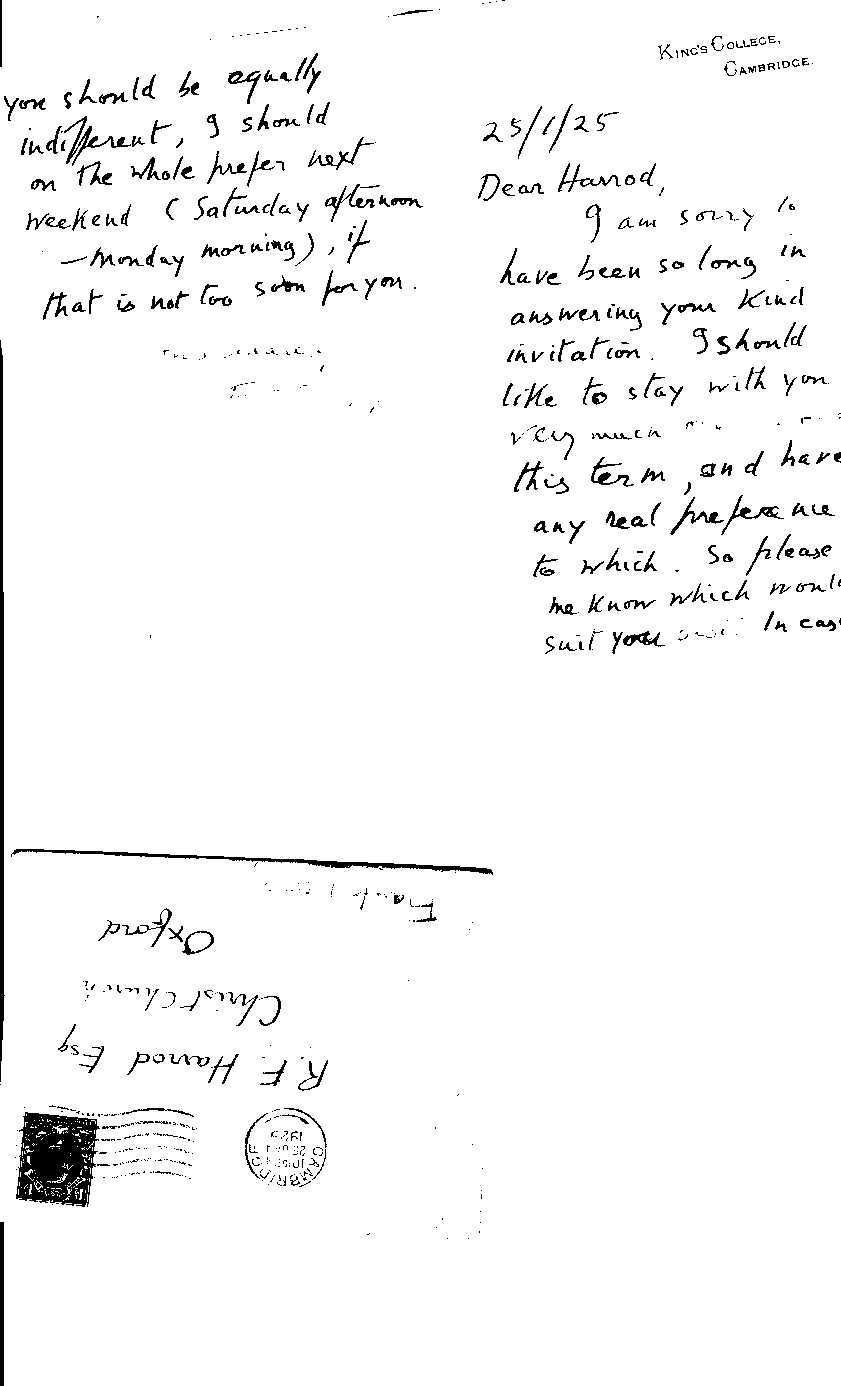 KING'S COLLEGE,
CAMBRIDGE.
25/1/25
Dear Harrod,
I am sorry to
have been so long in
answering your kind
invitation. I should
like to stay with you
very much
this term, and have
any real preference
to which. So please
me know which woul
suit you In cas
you should be equally
indifferent, I should
on the whole prefer next
weekend (Saturday afternoon
—Monday morning), if
that is not too soon for you.
R. F. Harrod Esq
Christ Church
Oxford
Frank
CAMBRIDGE
1925